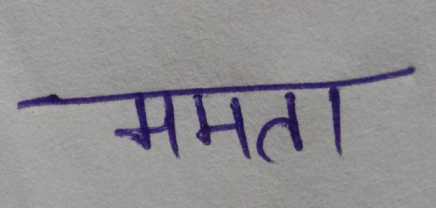 ममता